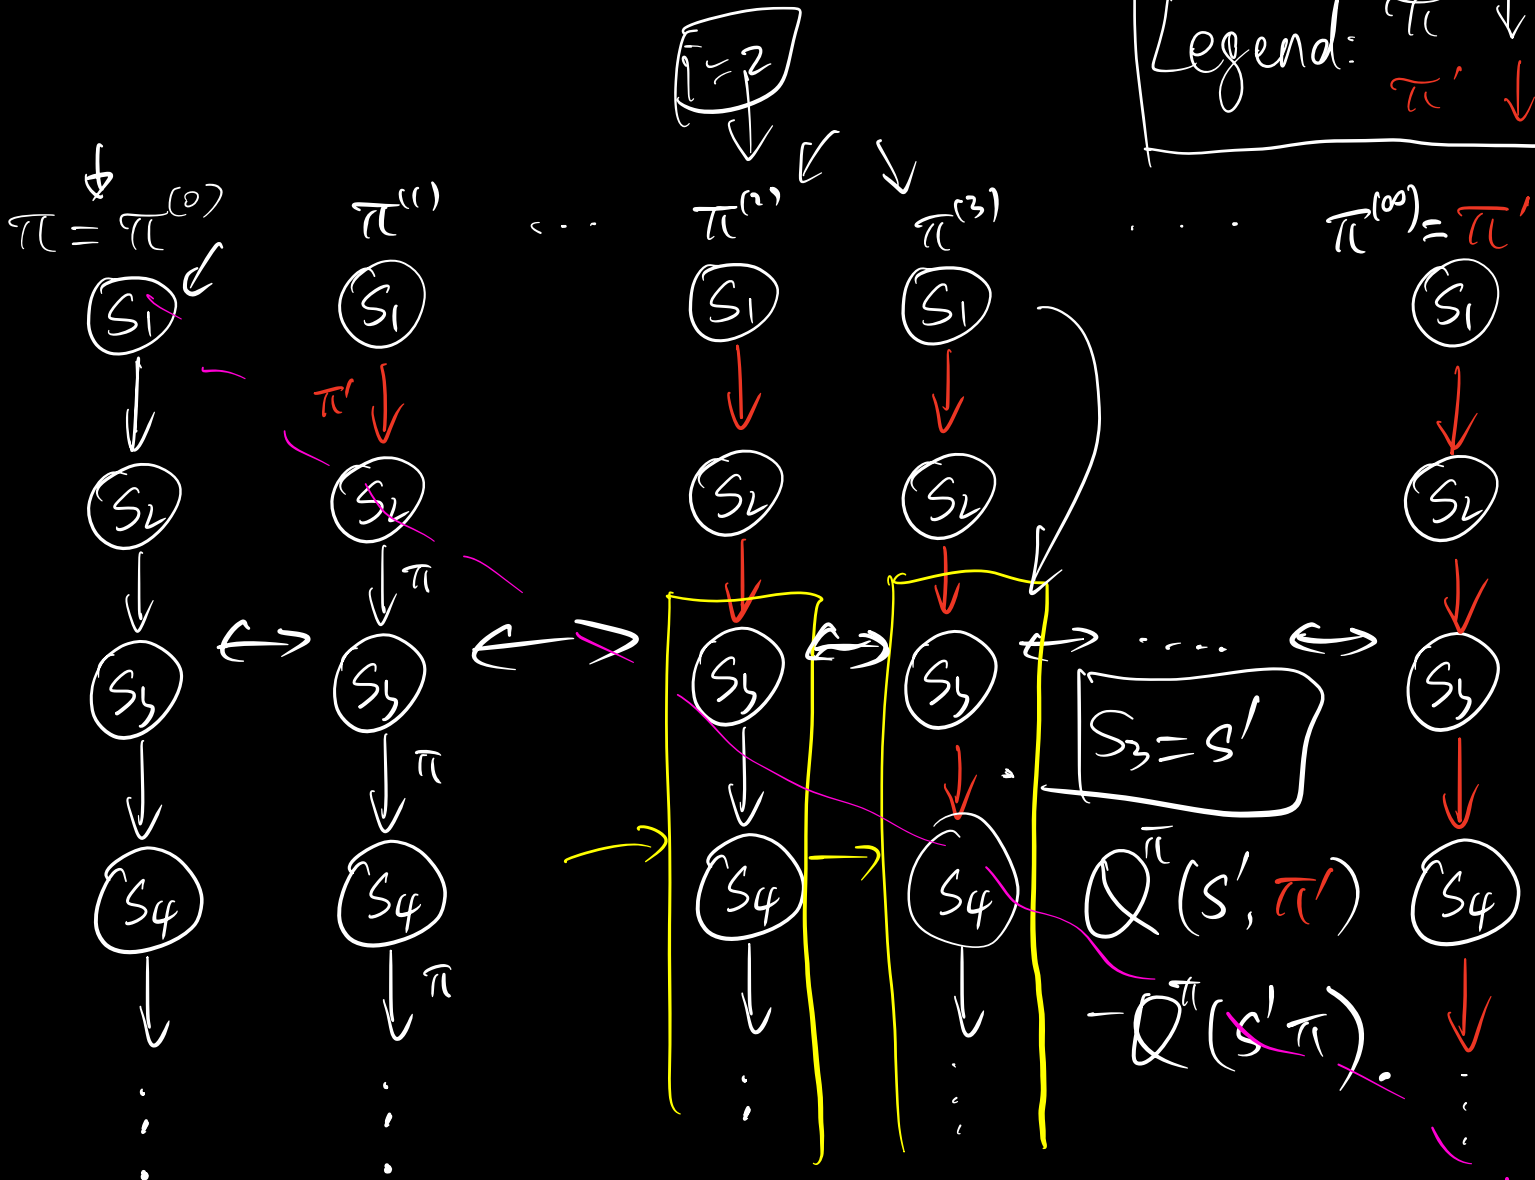 i=2
Legend: π ↓
π' ↓
π = π^(0) π^(1) ... π^(2) π^(3) .... π^(∞) = π'
S1 S1 S1 S1 S1
π'
S2 S2 S2 S2 S2
π
S3 S3 S3 S3 ..... S3
S3 = s'
π
S4 S4 S4 S4 S4
Q^π(s', π')
π
- Q^π(s' π).